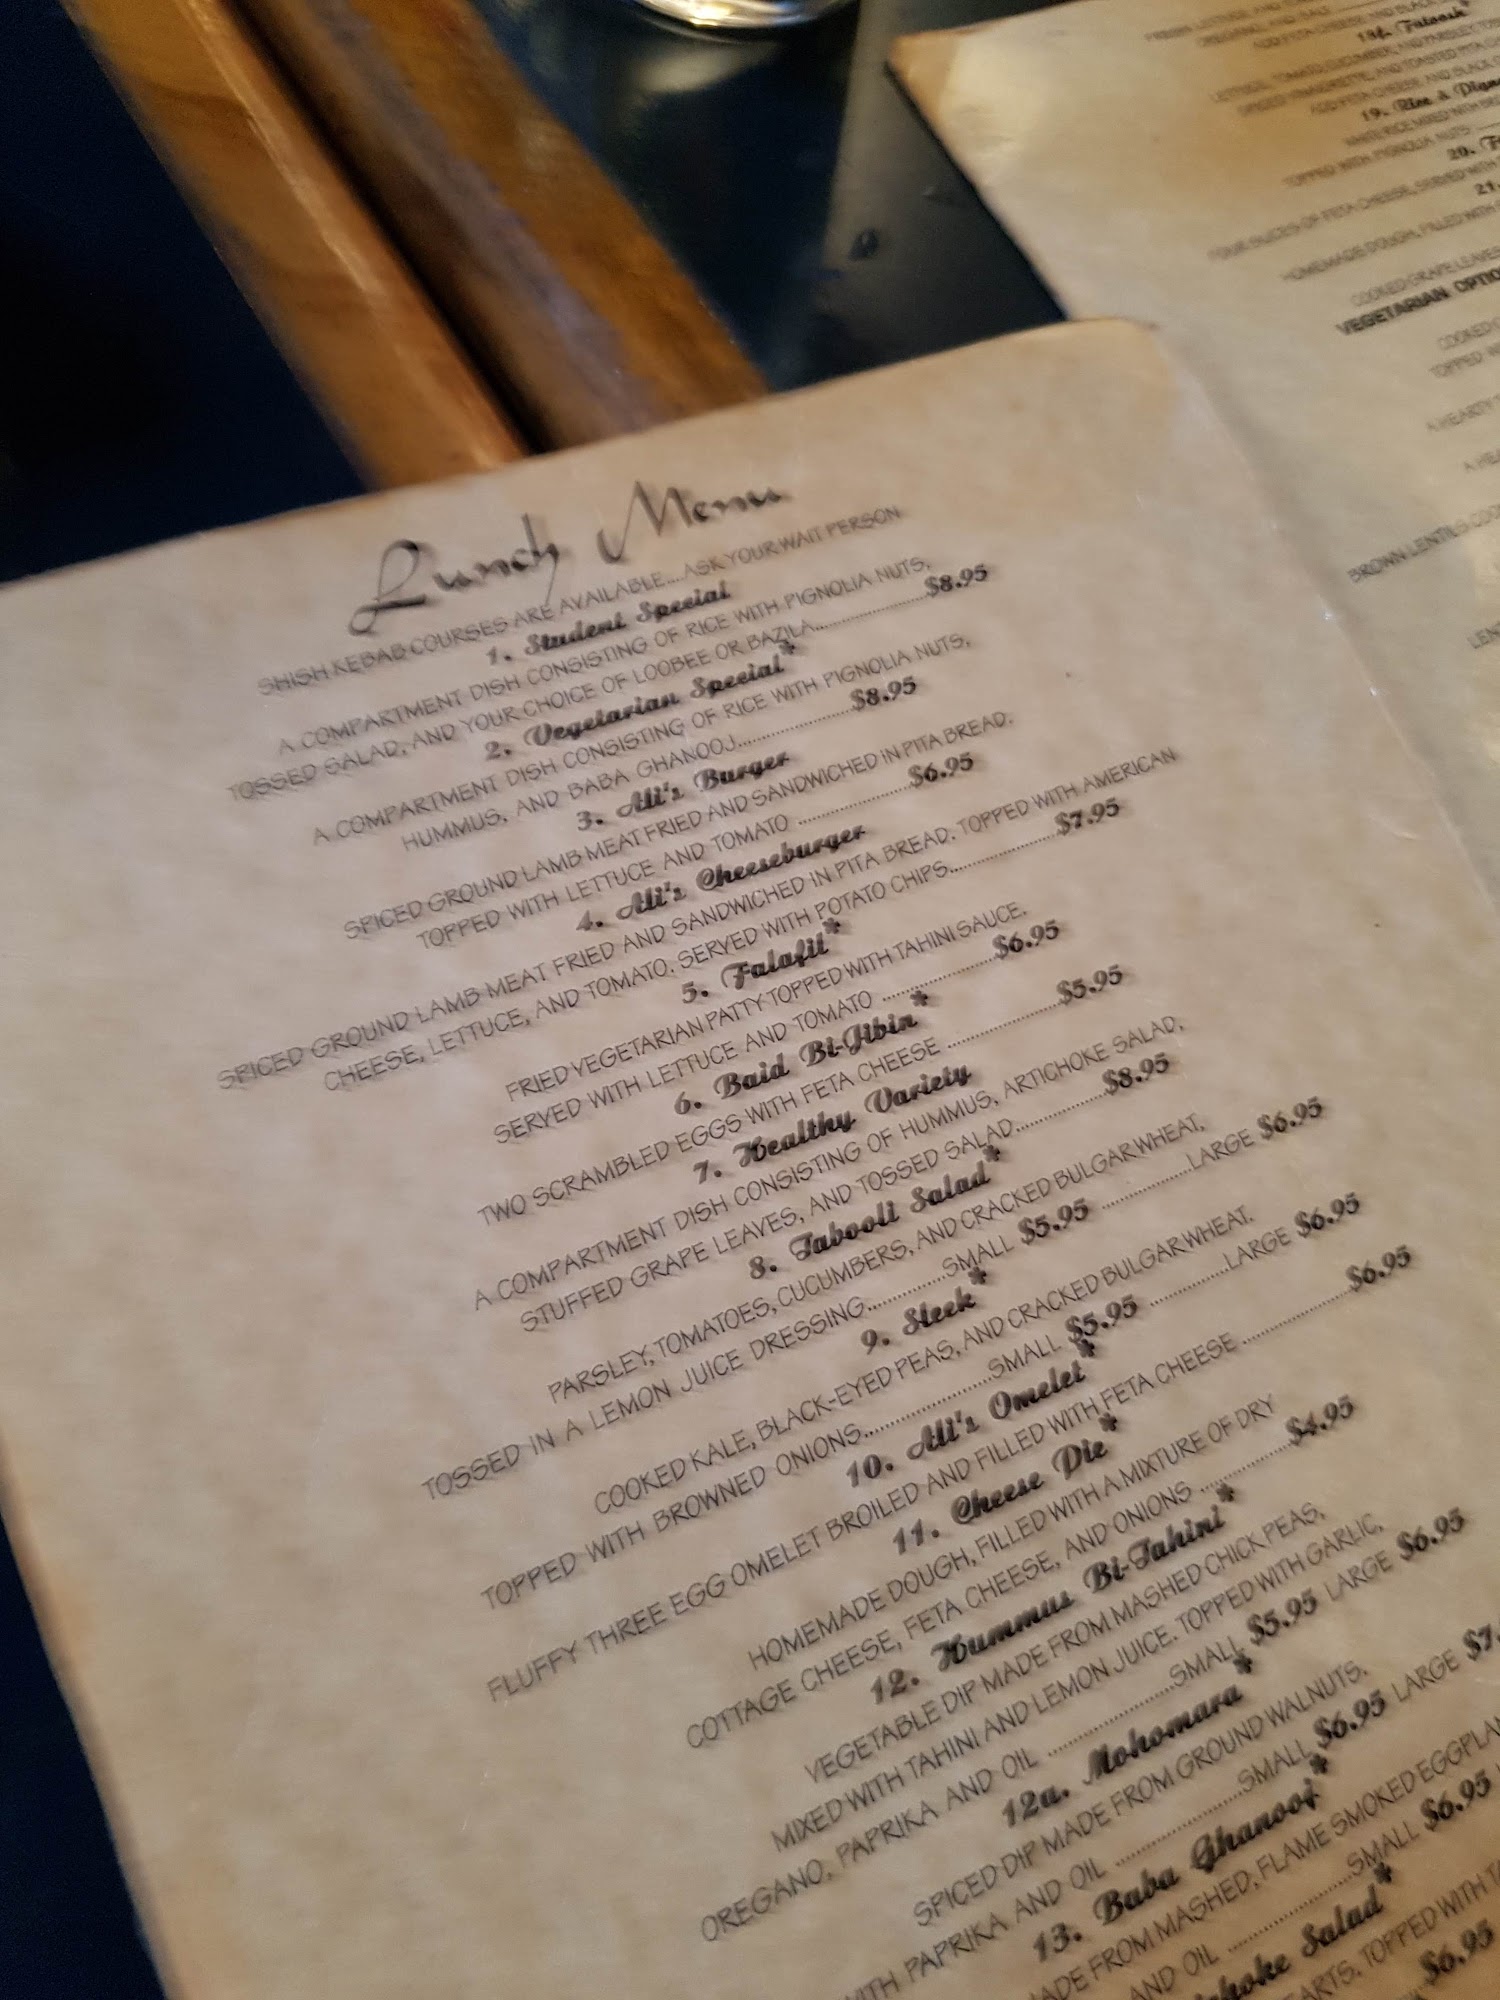 Lunch Menu
SHISH KEBAB COURSES ARE AVAILABLE....ASK YOUR WAIT PERSON
1. Student Special
A COMPARTMENT DISH CONSISTING OF RICE WITH PIGNOLIA NUTS,
TOSSED SALAD, AND YOUR CHOICE OF LOOBEE OR BAZILA....................$8.95
2. Vegetarian Special*
A COMPARTMENT DISH CONSISTING OF RICE WITH PIGNOLIA NUTS,
HUMMUS, AND BABA GHANOOJ....................$8.95
3. Ali's Burger
SPICED GROUND LAMB MEAT FRIED AND SANDWICHED IN PITA BREAD.
TOPPED WITH LETTUCE AND TOMATO ....................$6.95
4. Ali's Cheeseburger
SPICED GROUND LAMB MEAT FRIED AND SANDWICHED IN PITA BREAD. TOPPED WITH AMERICAN
CHEESE, LETTUCE, AND TOMATO. SERVED WITH POTATO CHIPS....................$7.95
5. Falafil*
FRIED VEGETARIAN PATTY TOPPED WITH TAHINI SAUCE.
SERVED WITH LETTUCE AND TOMATO ....................$6.95
6. Baid Bi-Jibin*
TWO SCRAMBLED EGGS WITH FETA CHEESE ....................$5.95
7. Healthy Variety
A COMPARTMENT DISH CONSISTING OF HUMMUS, ARTICHOKE SALAD,
STUFFED GRAPE LEAVES, AND TOSSED SALAD....................$8.95
8. Tabooli Salad*
PARSLEY, TOMATOES, CUCUMBERS, AND CRACKED BULGAR WHEAT,
TOSSED IN A LEMON JUICE DRESSING..............SMALL $5.95 ................LARGE $6.95
9. Sleek*
COOKED KALE, BLACK-EYED PEAS, AND CRACKED BULGAR WHEAT.
TOPPED WITH BROWNED ONIONS....................SMALL $5.95 ................LARGE $6.95
10. Ali's Omelet*
FLUFFY THREE EGG OMELET BROILED AND FILLED WITH FETA CHEESE ....................$6.95
11. Cheese Pie*
HOMEMADE DOUGH, FILLED WITH A MIXTURE OF DRY
COTTAGE CHEESE, FETA CHEESE, AND ONIONS ................$4.95
12. Hummus Bi-Tahini*
VEGETABLE DIP MADE FROM MASHED CHICK PEAS,
MIXED WITH TAHINI AND LEMON JUICE. TOPPED WITH GARLIC,
OREGANO, PAPRIKA AND OIL ....................SMALL $5.95 LARGE $6.95
12a. Mohomara*
SPICED DIP MADE FROM GROUND WALNUTS.
WITH PAPRIKA AND OIL ....................SMALL $6.95 LARGE
13. Baba Ghanooj*
MADE FROM MASHED, FLAME SMOKED
AND OIL ....................SMALL $6.95
Salad*
TOPPED WITH
$6.95
19. Rice &
WITH PIGNOLIA NUTS
20.
FOUR SLICES OF FETA CHEESE, SERVED WITH
21.
HOMEMADE DOUGH, FILLED WITH
COOKED GRAPE LEAVES
VEGETARIAN
COOKED
TOPPED
A HEARTY
BROWN LENTILS